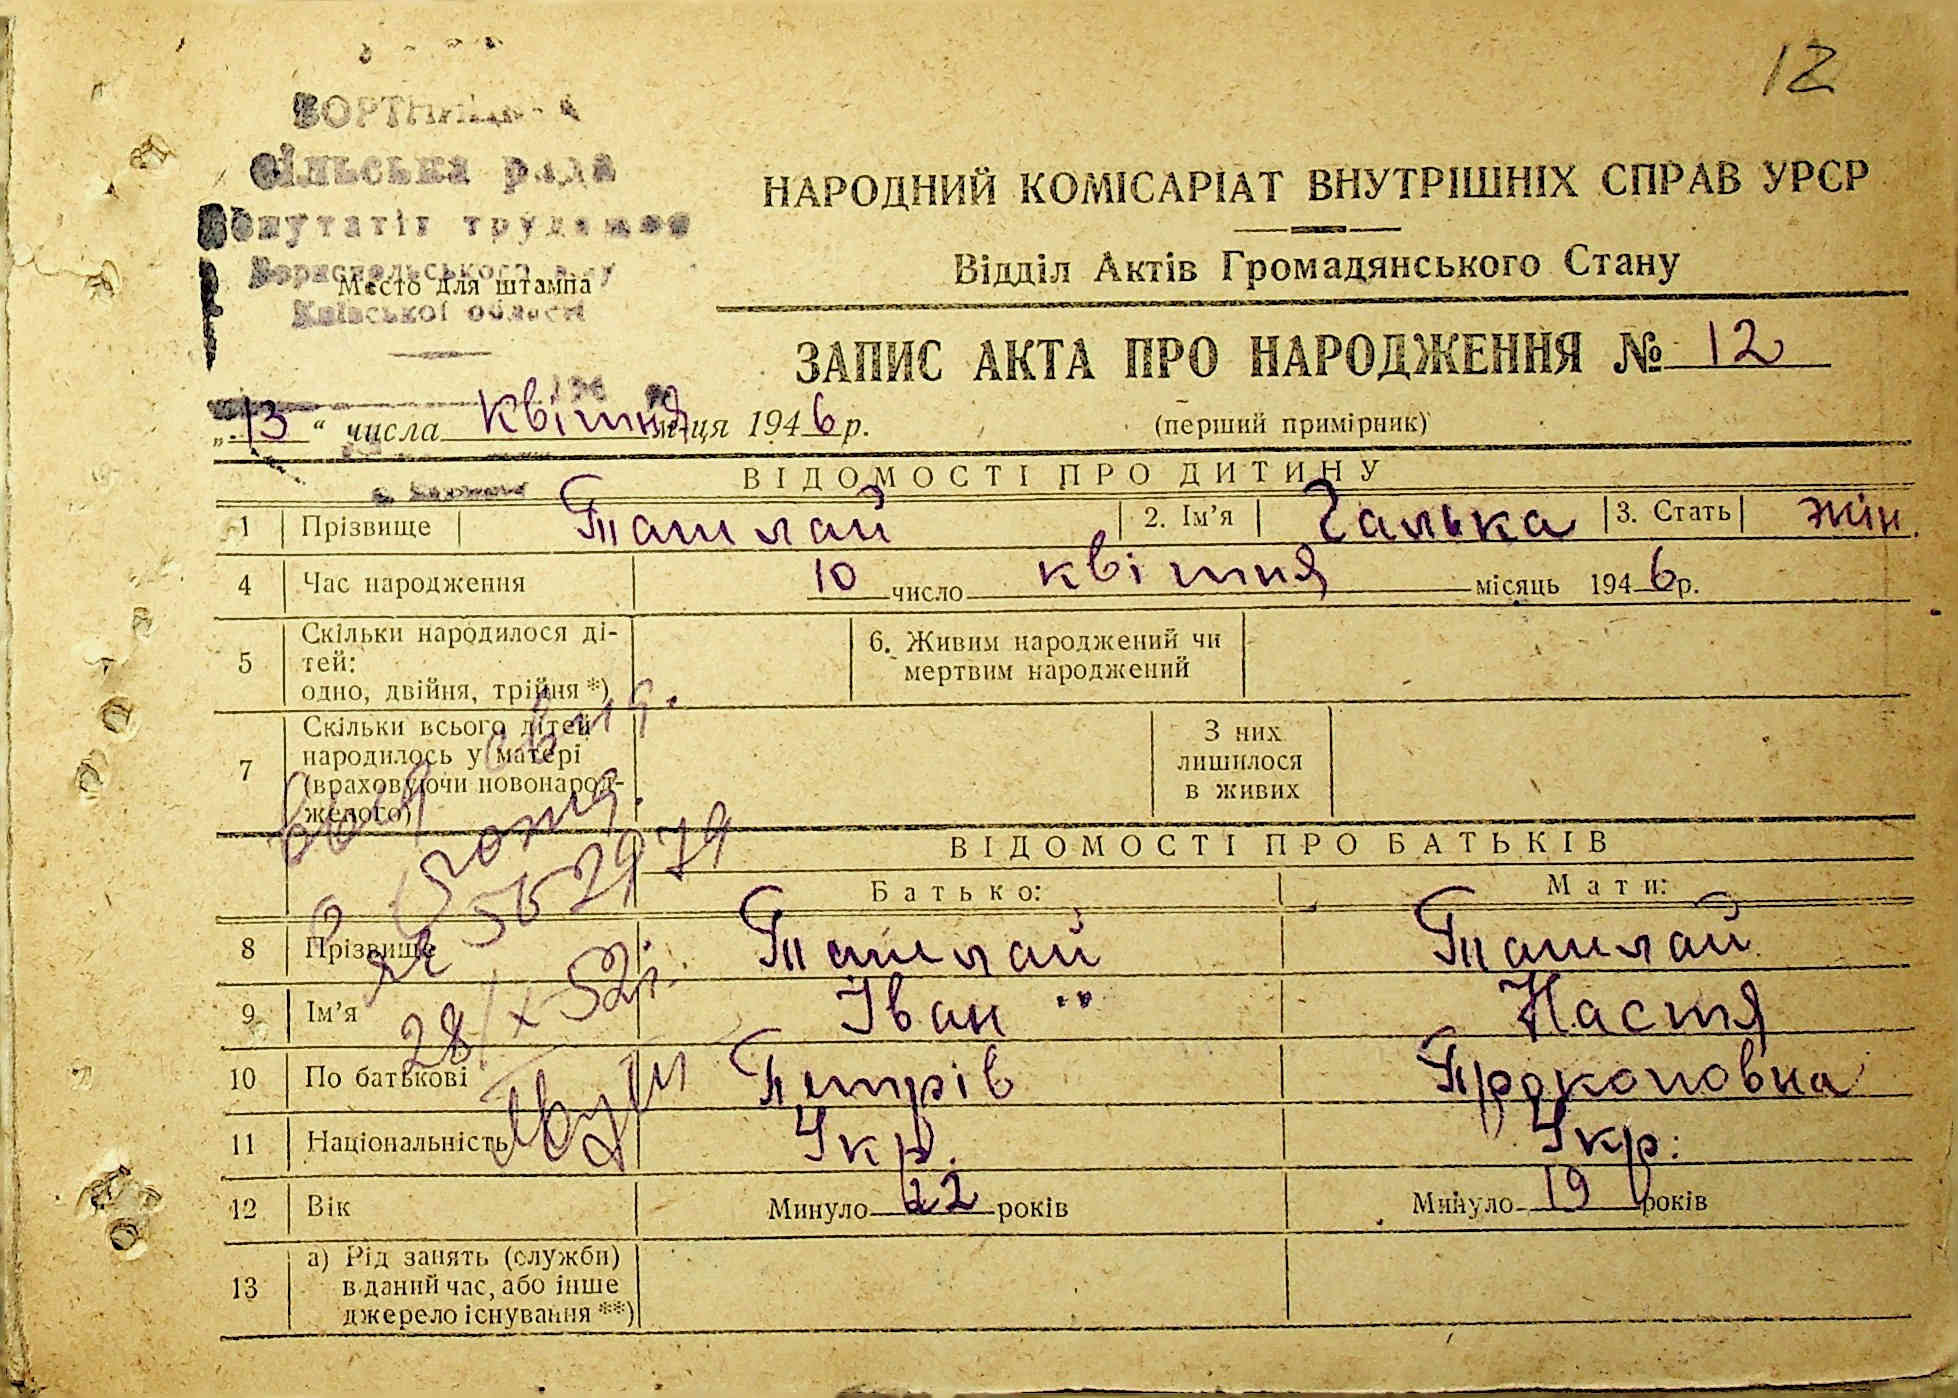 12
Сільська рада
депутатів трудящих
Бориспільського р-ну
Место для штампа
Київської області
НАРОДНИЙ КОМІСАРІАТ ВНУТРІШНІХ СПРАВ УРСР
Відділ Актів Громадянського Стану
ЗАПИС АКТА ПРО НАРОДЖЕННЯ № 12
„13“ числа квітня м-ця 1946 р.
(перший примірник)
ВІДОМОСТІ ПРО ДИТИНУ
1 Прізвище Ташлай 2. Ім'я Галька 3. Стать жін.
4 Час народження 10 число квітня місяць 1946 р.
5 Скільки народилося ді-
тей:
одно, двійня, трійня *)
6. Живим народжений чи
мертвим народжений
7 Скільки всього дітей
народилось у матері
(враховуючи новонарод-
женого)
З них
лишилося
в живих
ВІДОМОСТІ ПРО БАТЬКІВ
Батько: Мати:
8 Прізвище Ташлай Ташлай
9 Ім'я Іван Настя
10 По батькові Петрів Прокоповна
11 Національність Укр. Укр.
12 Вік Минуло 22 років Минуло 19 років
13 а) Рід занять (служби)
в даний час, або інше
джерело існування **)
28/X 52 г.